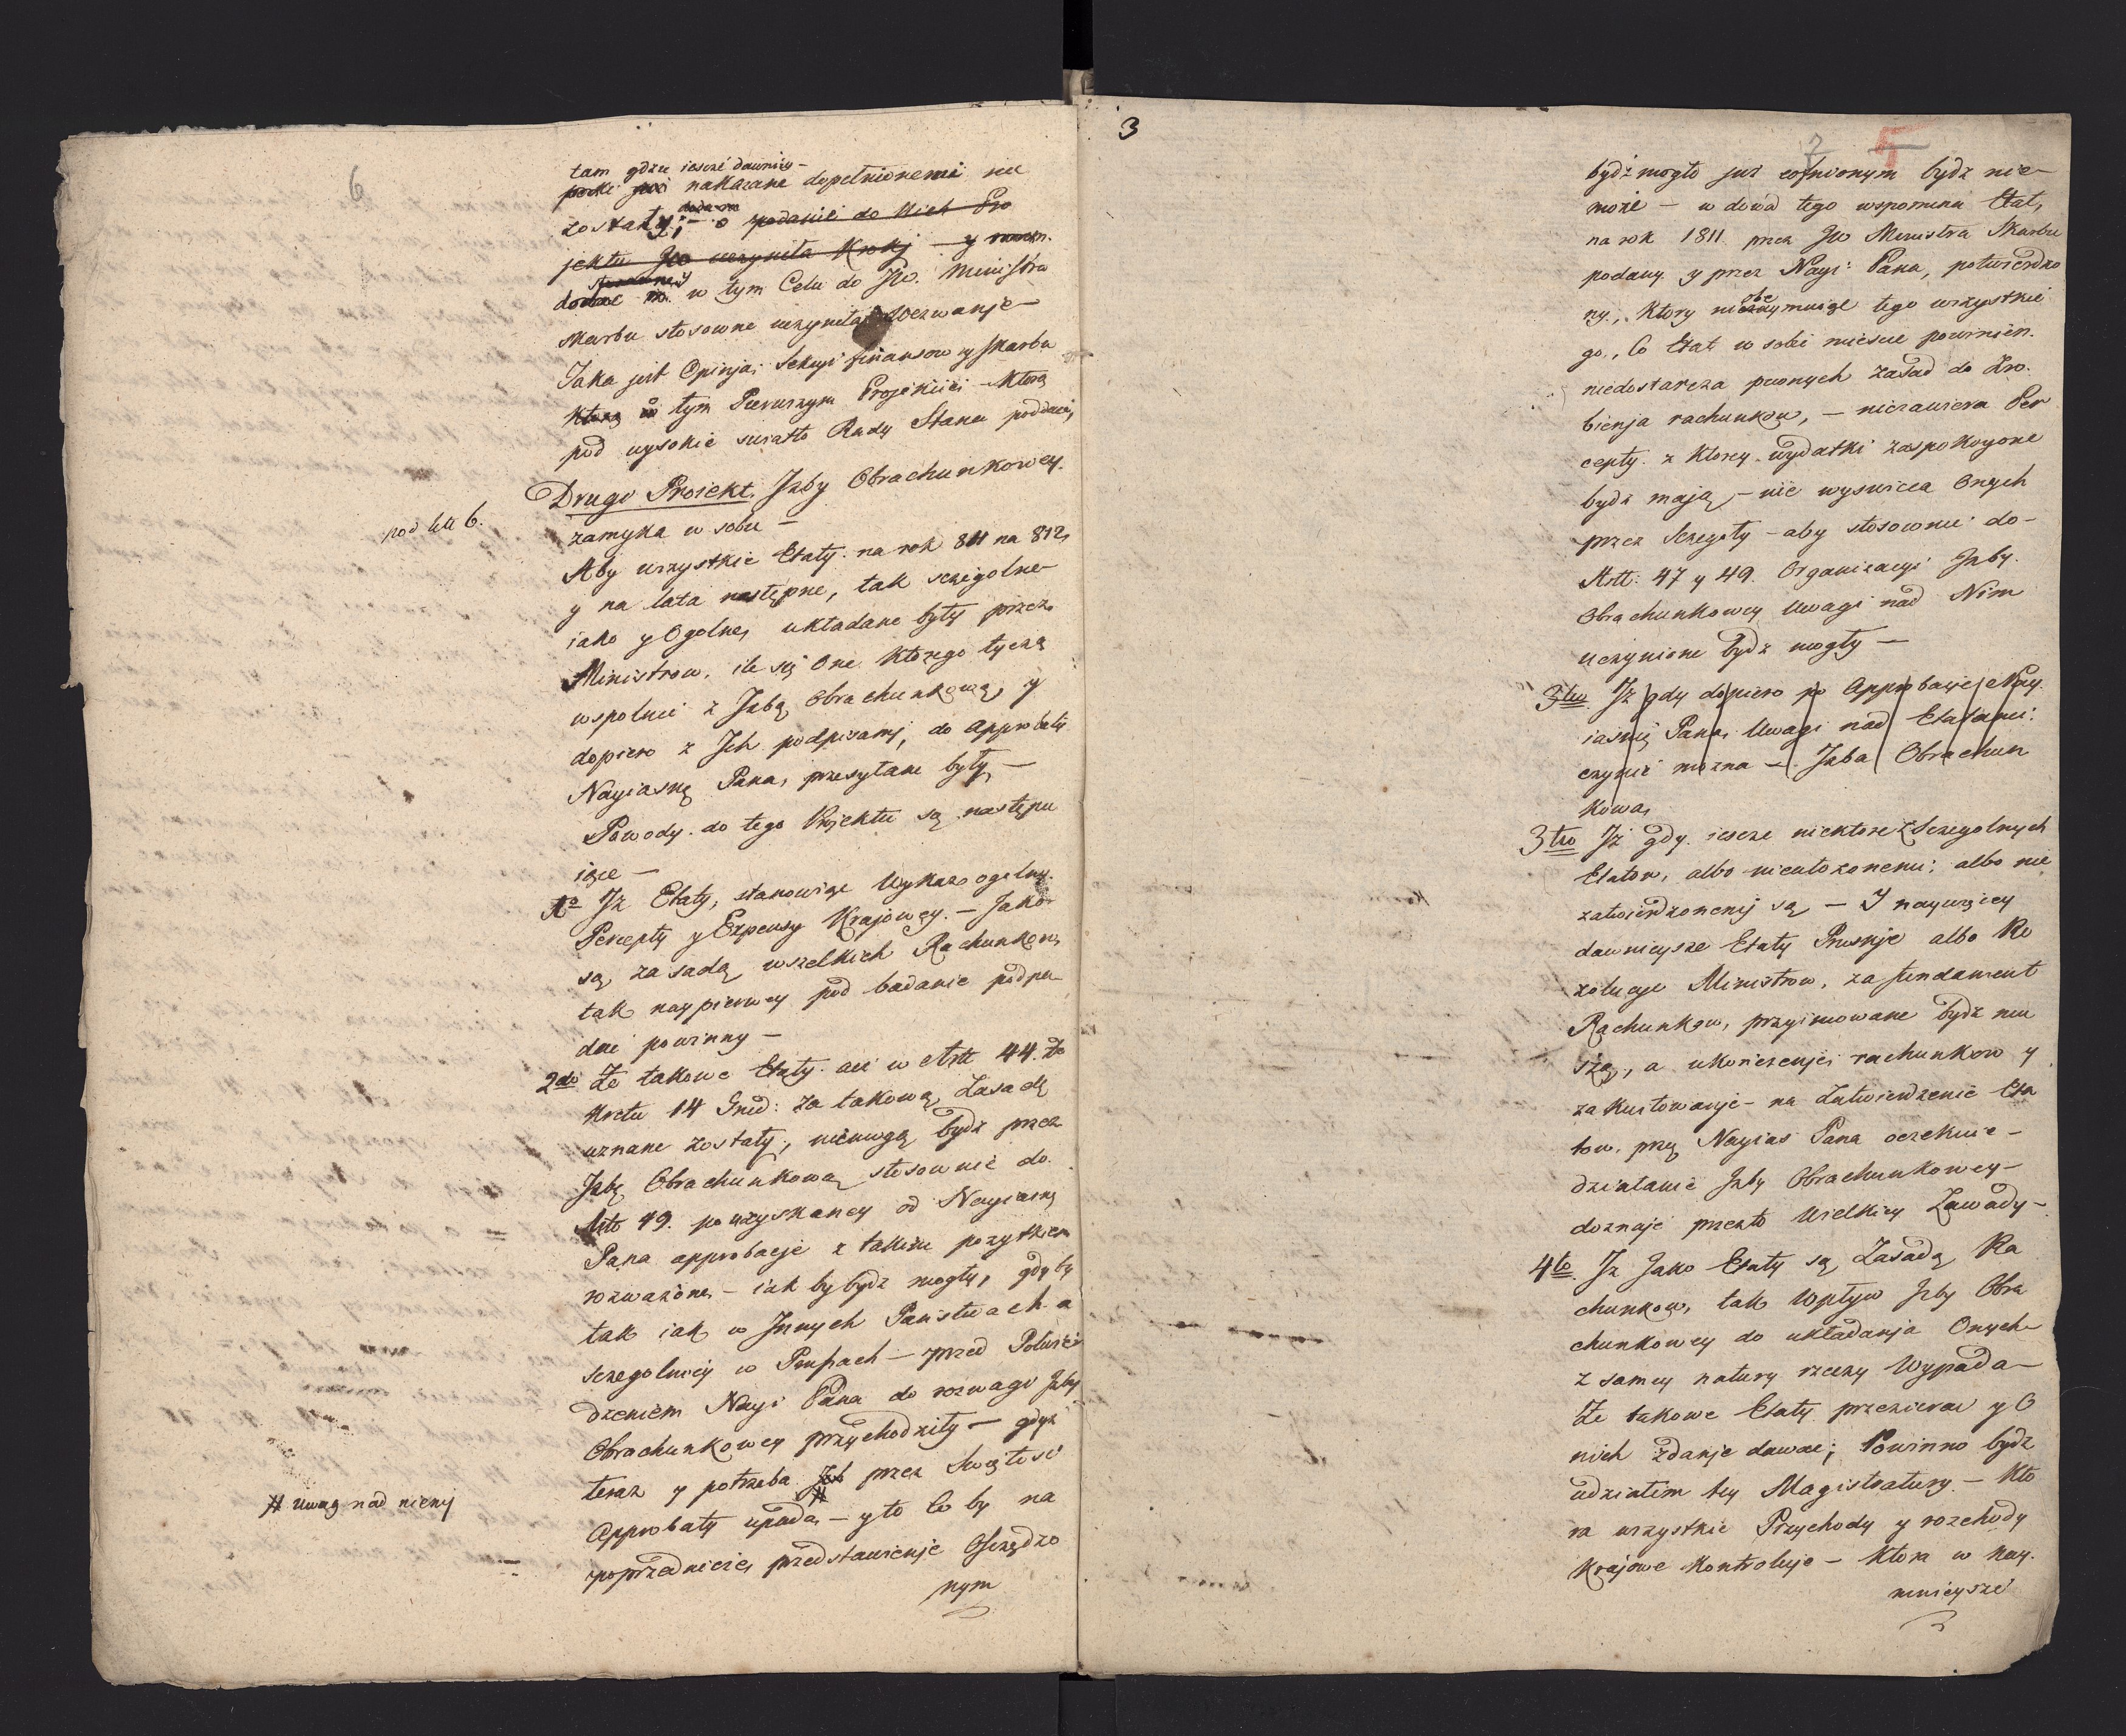 6
tam gdzie ieszcze dawniey
nakazane dopełnionemi nie
zostały; – o podanie do Nich Pro
jektu JW uczyniła Kroki – y
w tym Celu do JW. Ministra
Skarbu stosowne uczyniła Wezwanje –
Jaka jest Opinja, Sekcyi finansow y skarbu
Którą w tym Pierwszym Projekcie – Którą
pod wysokie swiatło Rady Stanu poddaie,
pod litt 6.
Drugi Proiekt. Jzby Obrachunkowey.
zamyka w sobie –
Aby wszystkie Etaty na rok 811 na 812,
y na lata następne, tak sczegolne
iako y Ogolne, układane były przez
Ministrow, ile się One Ktorego tyczą
wspolnie z Jzbą Obrachunkową, y
dopiero z Jch podpisamj, do Approbaty
Nayiasnę Pana, przesyłane były –
Powody do tego Projektu są następu
iące –
1º Jż Etaty, stanowiąc Wykaz ogolny
Percepty y Expensy Krajowey. – Jako
są zasadą wszelkich Rachunkow,
tak naypierwey pod badanie podpa
dać powinny –
2do Że takowe Etaty ac w Artt 44. De
kretu 14 Grud: za takową Zasadę
uznane zostały; niemogą bydź przez
Jzbę Obrachunkową stosownie do
Artt 49. po uzyskaney od Nayiasnę
Pana approbacje z takim pozytkiem
rozważone, – iak by bydź mogły, gdyby
tak iak w Jnnych Państwach a
sczegolniey w Prusach – przed Potwier
dzeniem Nayi Pana do rozwagi Jzby
Obrachunkowey przychodziły – gdyż
teraz y potrzeba Jch # przez Swiętość
# Uwag nad niemj
Approbaty upada, – y to Co by na
poprzedniczé, przedstawienje Osczędzo
nym
3
7 5
bydź mogło już cofnionym bydź nie
może – w dowód tego wspomina Etat,
na rok 1811. przez JW Ministra Skarbu
podany y przez Nayi: Pana, potwierdzo
ny, Ktory nieobeymuiąc tego wszystkie
go, Co Etat w sobie miescic powinien.
niedostarcza pewnych Zasad do Zro.
bienja rachunkow, – niezawiera Per
cepty z Ktorey wydatki zaspokojone
bydź mają, – nie wyswieca Onych
przez Sczegoły – aby stosownie do
Artt: 47 y 49. Organizacyi Jzby.
Obrachunkowey Uwagi nad Nim
uczynione bydź mogły –
3tio Jż gdy dopiero po Approbacyi Nay
iasnię Pana, Uwagi nad Etatami:
czynić można – Jzba Obrachun
kowa,
3tio Jż gdy iescze niektore z Sczegolnych
Etatow, albo nieułożonemi; albo nie
zatwierdzonemj są – I naywięcey
dawnieysze Etaty Pruskje albo Re
zolucye Ministrow, za fundament
Rachunkow, przyimowane bydź mu
szą, a ukończenje rachunkow y
zakwitowanje – na Zatwierdzenie Eta
tow, prze Nayias Pana oczekuie –
działanie Jzby Obrachunkowey –
doznaje przezto Wielkiey Zawady –
4to Jż Jako Etaty są Zasadą Ra
chunkow, tak Wpływ Jzby Obra
chunkowey do układanja Onych –
z samey natury rzeczy Wypada –
Że takowe Etaty przezierac y O
nich zdanje dawac; Powinno bydź
udziałem tey Magistratury – Kto
ra wszystkie Przychody y rozchody
Krajowe Kontroluje – Ktora w nay.
mnieysze